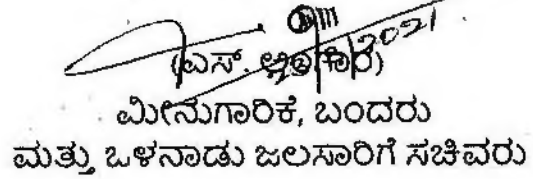 2021
(ಎಸ್. ಅಂಗಾರ)
ಮೀನುಗಾರಿಕೆ, ಬಂದರು
ಮತ್ತು ಒಳನಾಡು ಜಲಸಾರಿಗೆ ಸಚಿವರು